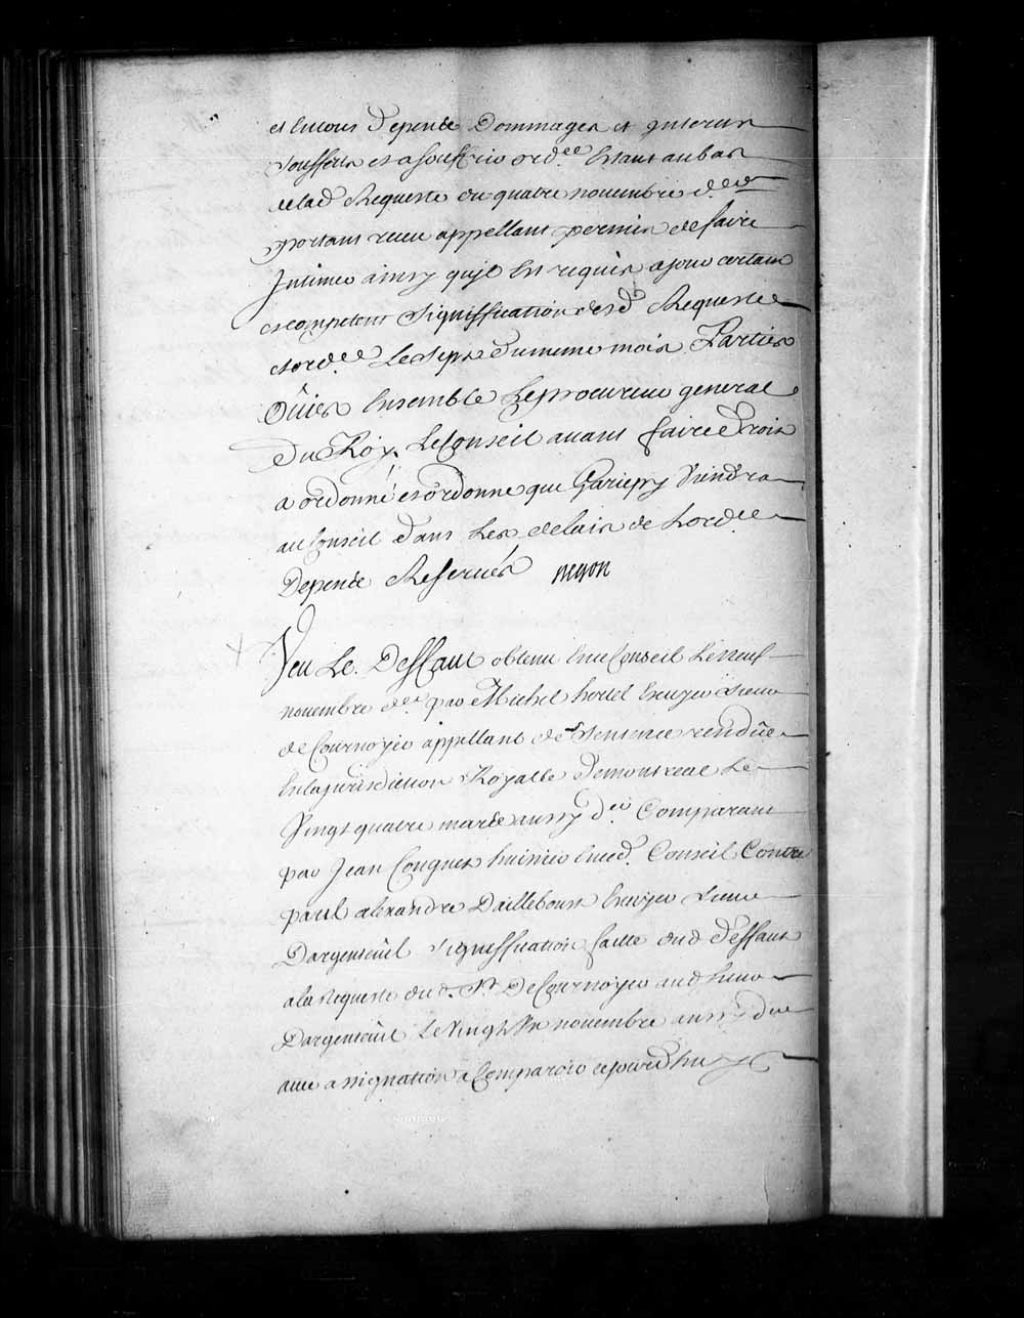 et en tous depents Dommages et Interests
souffers et a souffrir ord.ce Estant au bas
de lad Requeste du quatre novembre d.er
portant receu appellant permis de faire
Intimer ainsy qu'il En requis a jour certain
et competent Signiffication desd Requeste
et ord.ce Le sept dumeme mois Parties
Oüies Ensemble Le procureur general
Du Roy. Le Conseil avant faire Droit
a ordonné et ordonne que Gariepy Viendra
au Conseil dans Les delais de Lord.ce
Depents Reservés Begon
Veu Le Deffaut obtenu En ce Conseil Le neuf
novembre d.er par Michel hertel Ecuyer Sieur
de Cournoyer appellant de Sentence rendüe
En la jurisdiction Royalle de montreal Le
Vingt quatre mars aussy d.er Comparant
par Jean Congnet huissier En ced. Conseil Contre
paul alexandre Dailleboust Ecuyer Sieur
Dargenteüil Signiffication faitte dud deffaut
a la Requeste dud. Sr. De Cournoyer aud Sieur
Dargenteüil Le Vingt Six novembre aussy der
avec assignation a Comparoir cejourd'huy